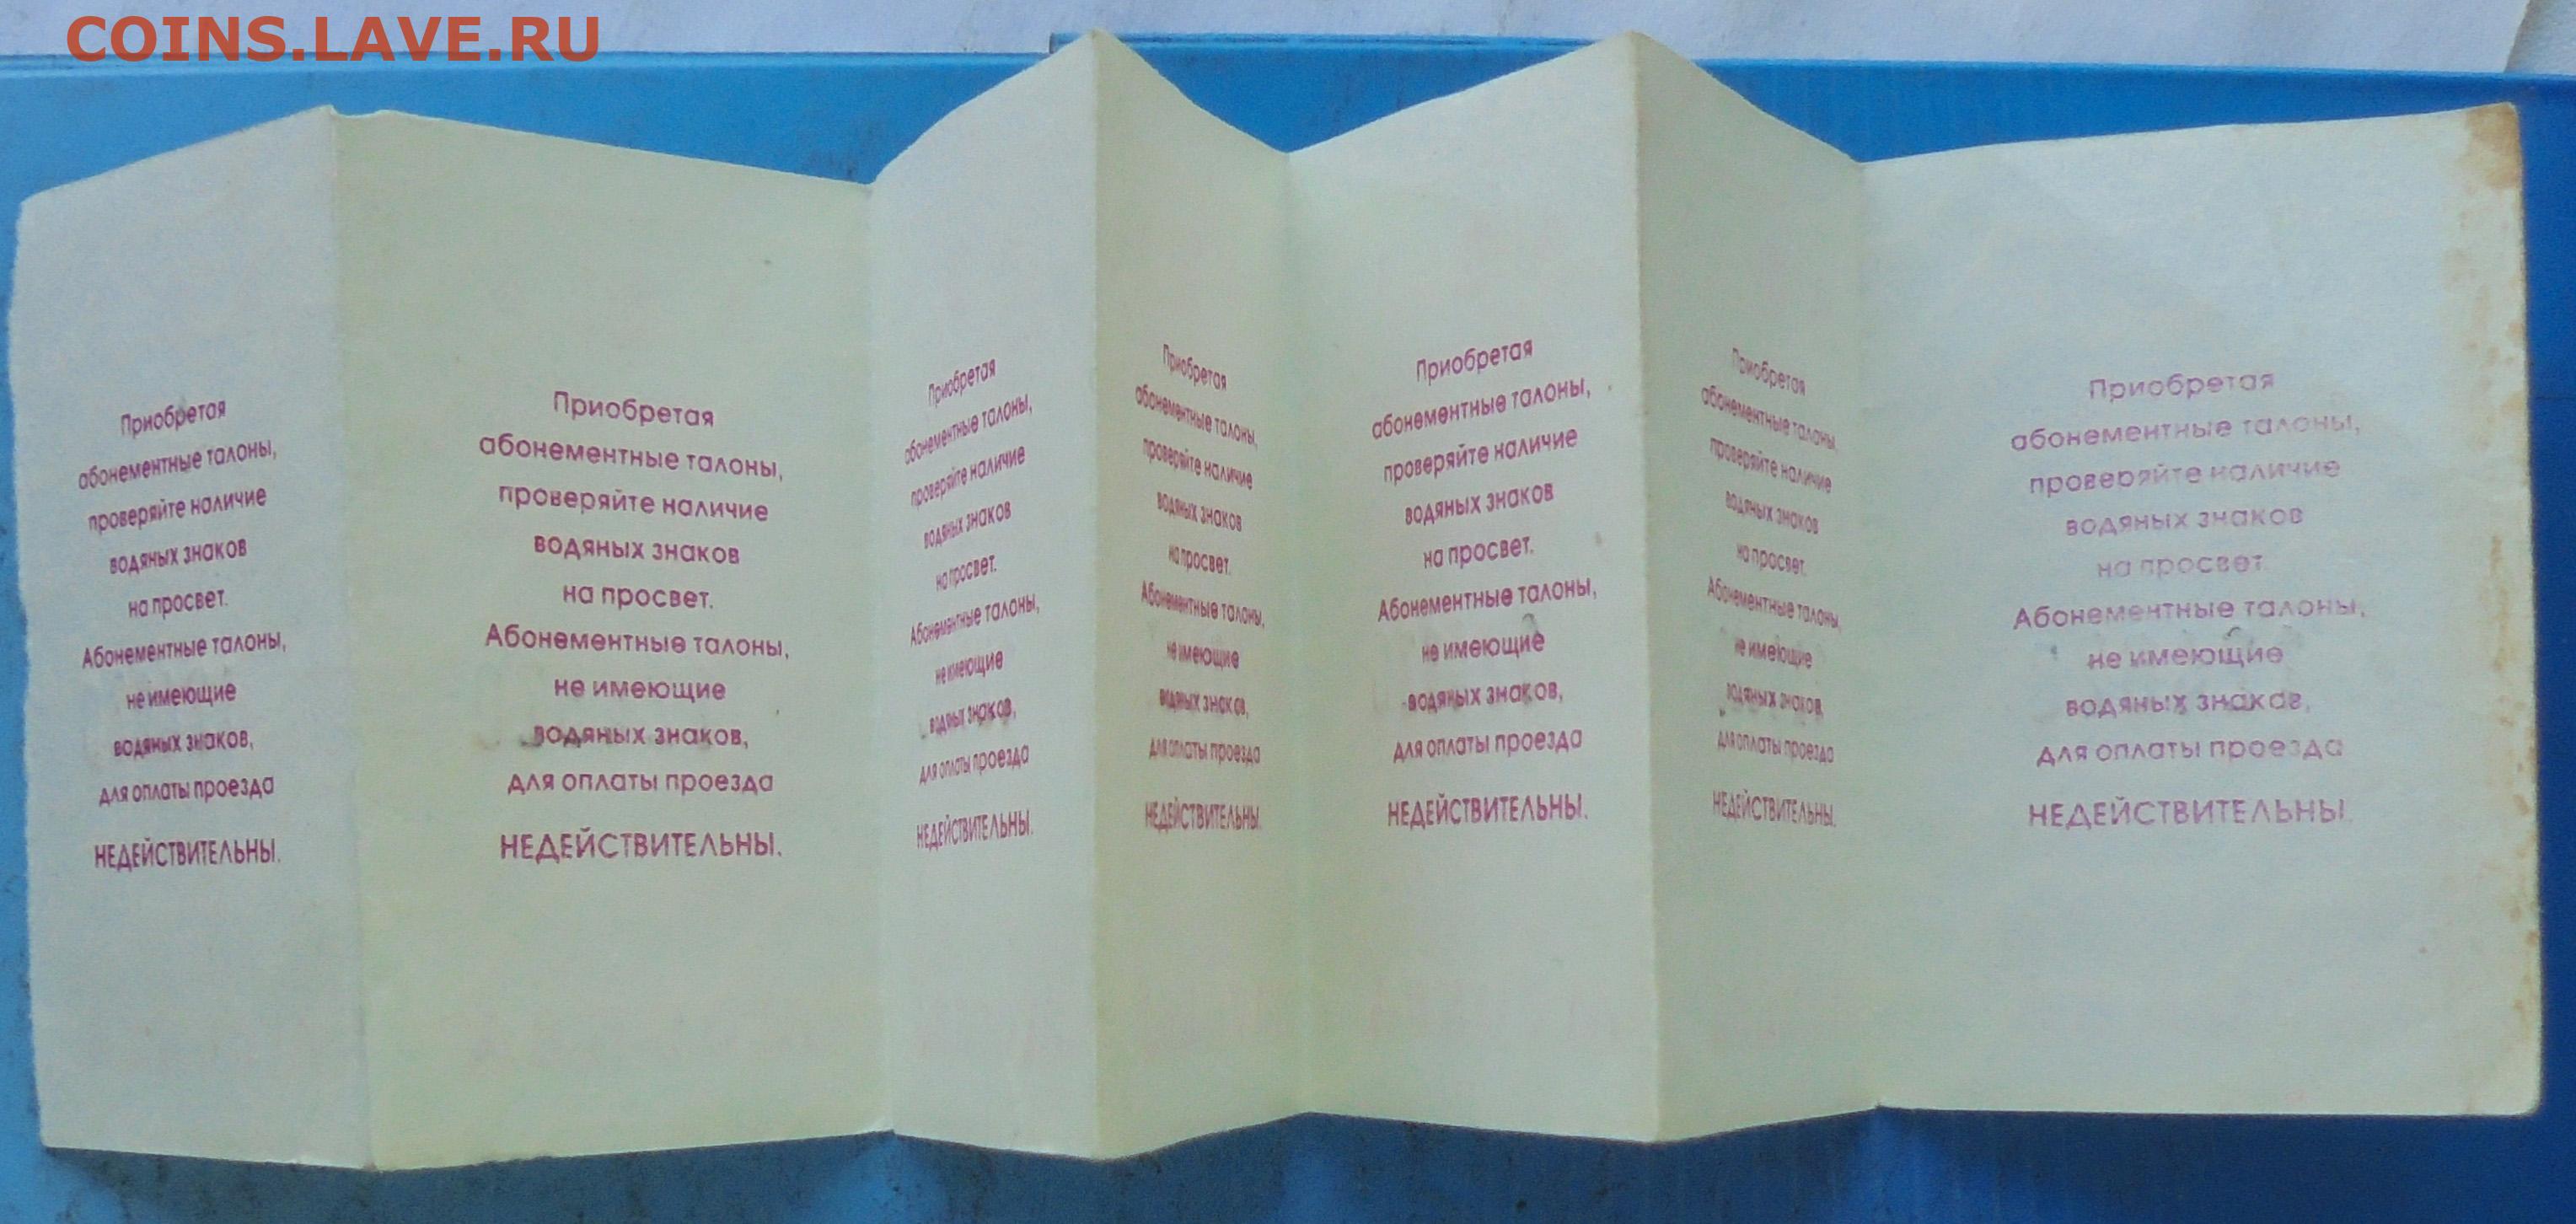 COINS.LAVE.RU
Приобретая
абонементные талоны,
проверяйте наличие
водяных знаков
на просвет.
Абонементные талоны,
не имеющие
водяных знаков,
для оплаты проезда
НЕДЕЙСТВИТЕЛЬНЫ.
Приобретая
абонементные талоны,
проверяйте наличие
водяных знаков
на просвет.
Абонементные талоны,
не имеющие
водяных знаков,
для оплаты проезда
НЕДЕЙСТВИТЕЛЬНЫ.
Приобретая
абонементные талоны,
проверяйте наличие
водяных знаков
на просвет.
Абонементные талоны,
не имеющие
водяных знаков,
для оплаты проезда
НЕДЕЙСТВИТЕЛЬНЫ.
Приобретая
абонементные талоны,
проверяйте наличие
водяных знаков
на просвет.
Абонементные талоны,
не имеющие
водяных знаков,
для оплаты проезда
НЕДЕЙСТВИТЕЛЬНЫ.
Приобретая
абонементные талоны,
проверяйте наличие
водяных знаков
на просвет.
Абонементные талоны,
не имеющие
водяных знаков,
для оплаты проезда
НЕДЕЙСТВИТЕЛЬНЫ.
Приобретая
абонементные талоны,
проверяйте наличие
водяных знаков
на просвет.
Абонементные талоны,
не имеющие
водяных знаков,
для оплаты проезда
НЕДЕЙСТВИТЕЛЬНЫ.
Приобретая
абонементные талоны,
проверяйте наличие
водяных знаков
на просвет.
Абонементные талоны,
не имеющие
водяных знаков,
для оплаты проезда
НЕДЕЙСТВИТЕЛЬНЫ.